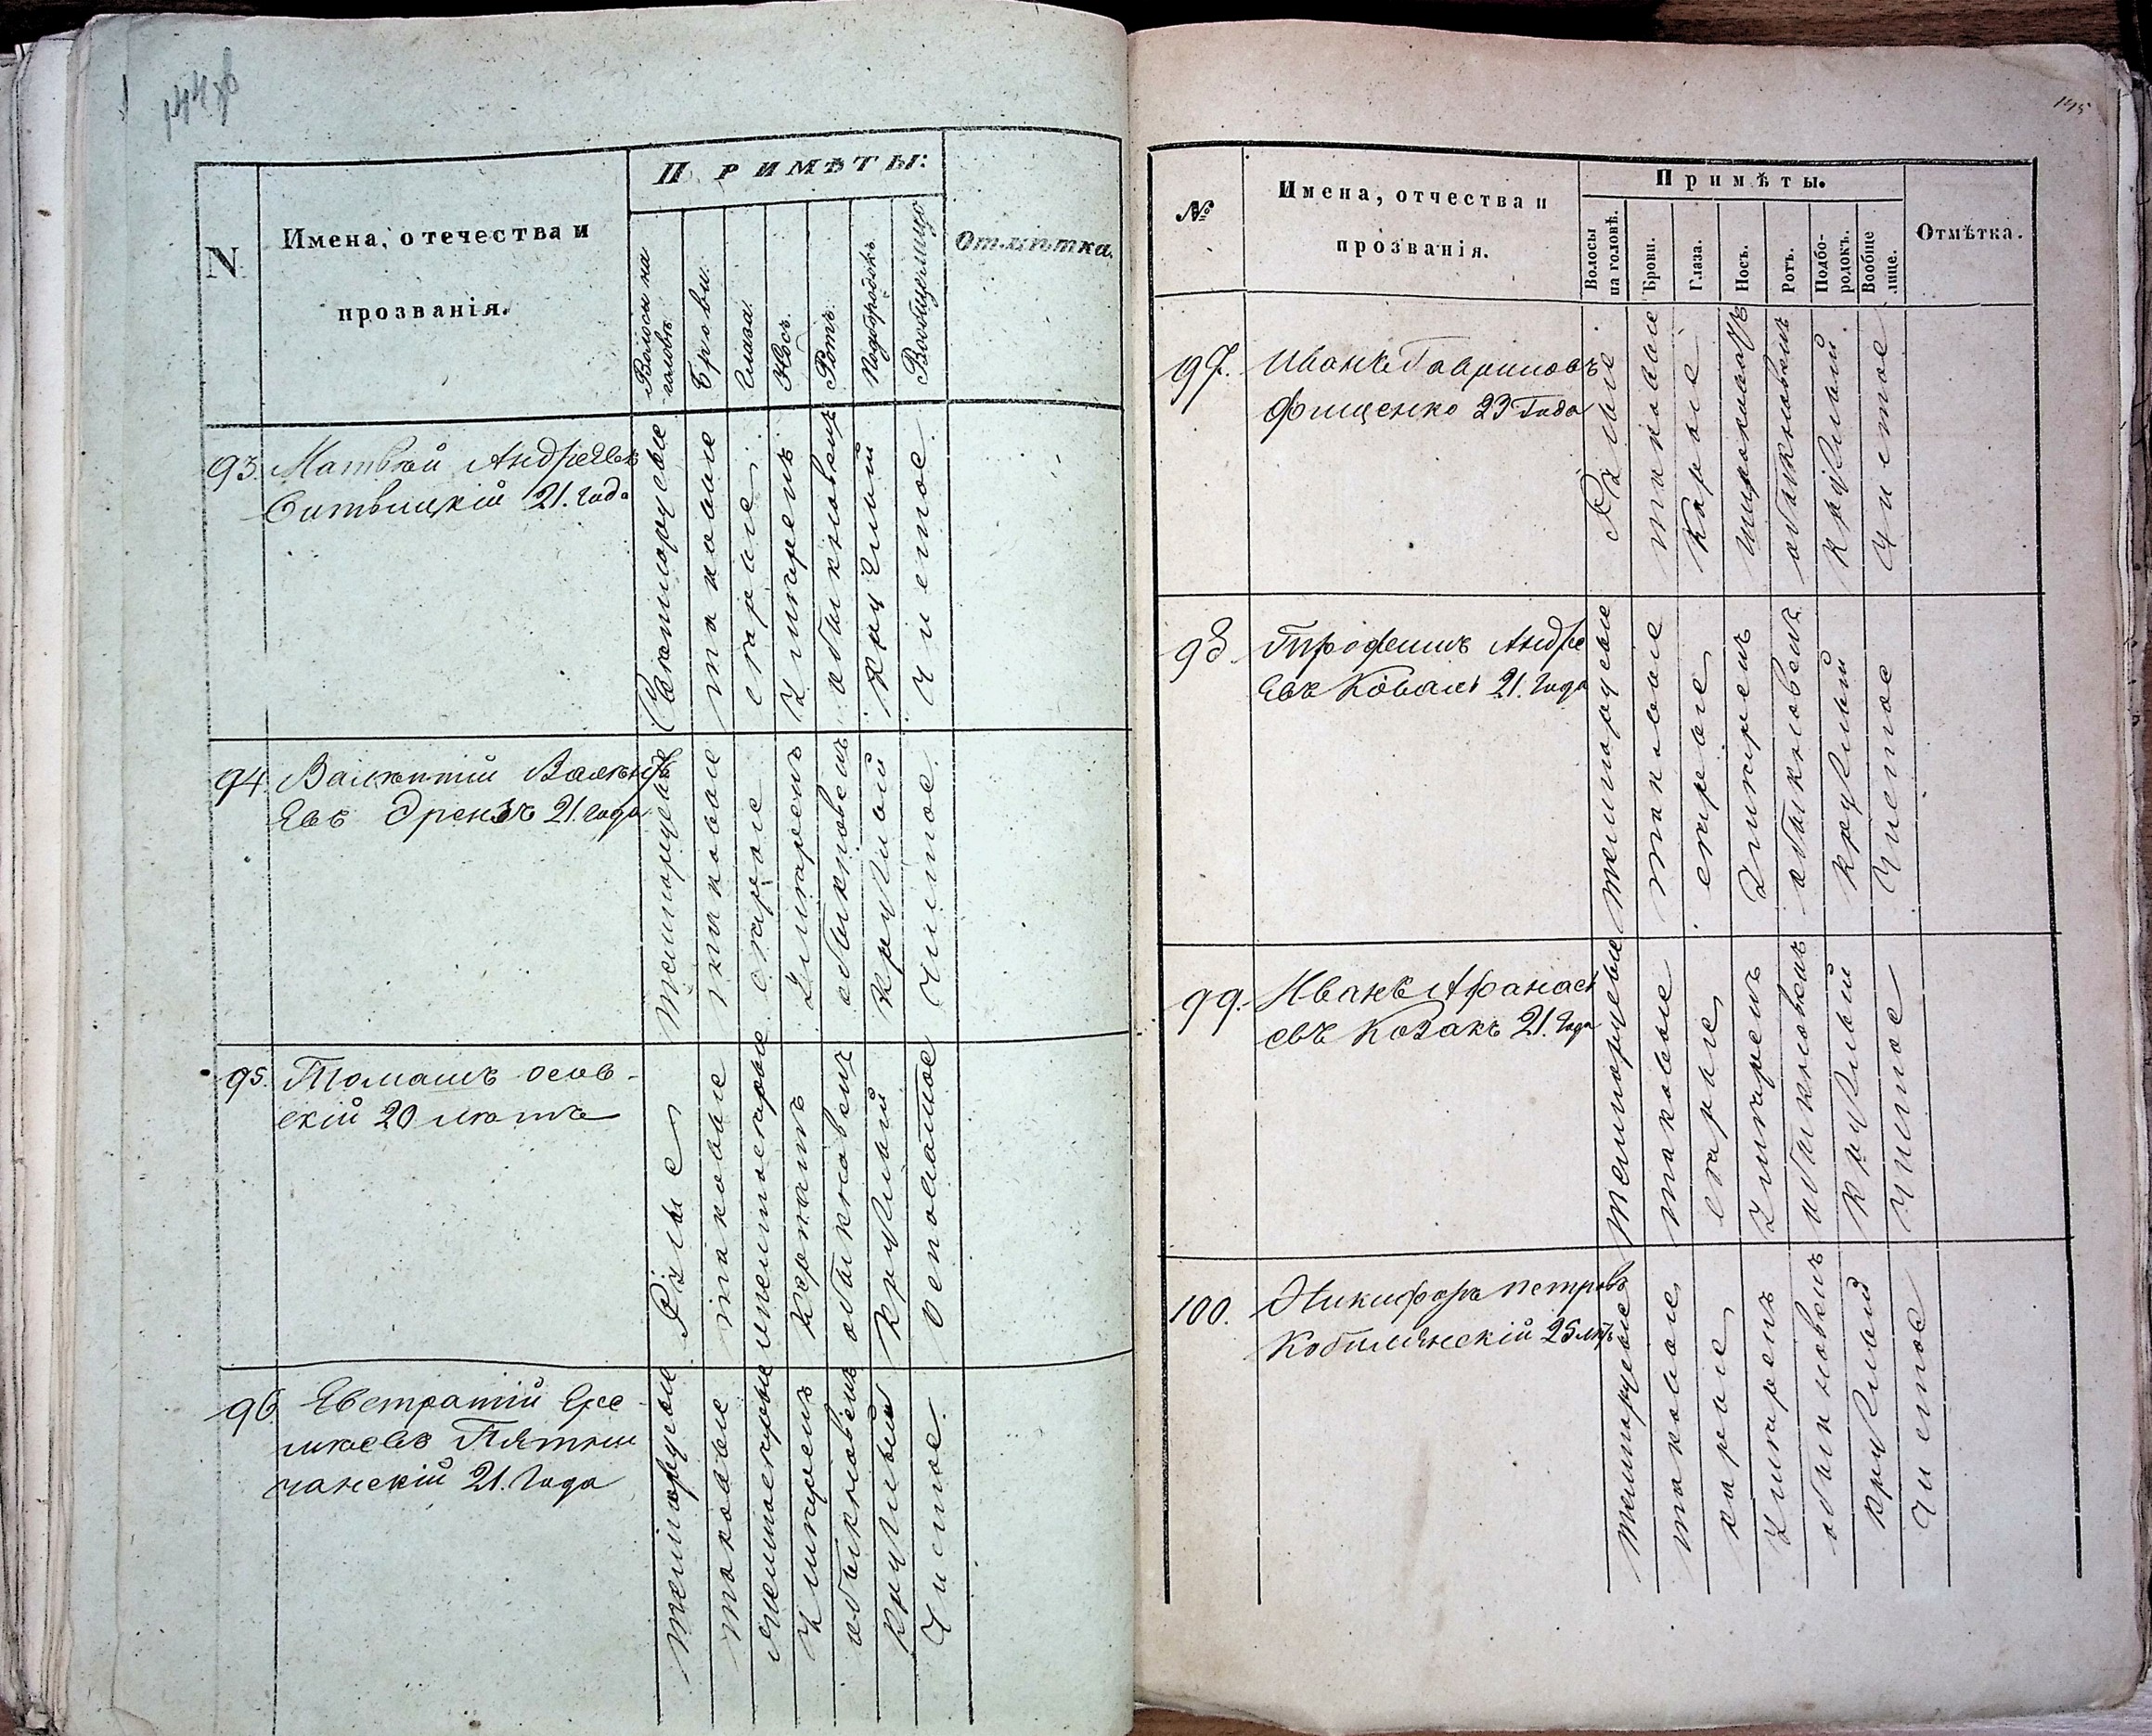 N
Имена, отечества и
прозванія.
Примѣты:
Волосы на
головѣ
Брови.
Глаза.
Носъ.
Ротъ.
Подбородокъ.
Вообще лице
Отмѣтка.
93. Матвѣй Андреевъ
21. года
Свѣтлорусые
таковые
серые
умѣренъ
обыкновенъ
круглый
Чистое.
94.
евъ 21. года
темнорусые
таковые
серые
умѣренъ
обыкновенъ
круглый
Чистое.
95. Томашъ Осов-
скій 20 лѣтъ
Русые
таковые
темносерые
обыкновенъ
круглый
веповатое
96 Евстратій
Пятни
чанскій 21. Года
темнорусые
таковые
темносерые
умѣренъ
обыкновенъ
круглый
Чистое.
145
№
Имена, отчества и
прозванія.
Примѣты.
Волосы
на головѣ.
Брови.
Глаза.
Носъ.
Ротъ.
Подбо-
родокъ.
Вообще
лице.
Отмѣтка.
97. Иванъ Гавриловъ
Фищенко 23 Года
Русые
таковые
Карые
широковатъ
обыкновенъ
круглый
Чистое
98 Трофимъ Андре
евъ Коваль 21. Года
темнорусые
таковые
серые
Умѣренъ
обыкновенъ
круглый
Чистое
99. Иванъ Афанась
евъ Козакъ 21. Года
Темнорусые
таковые
серые
Умѣренъ
обыкновенъ
круглый
Чистое
100. Никифоръ Петровъ
Кобилянскій 25 лѣтъ
темнорусые
таковые
карые
Умѣренъ
обыкновенъ
круглый
Чистое